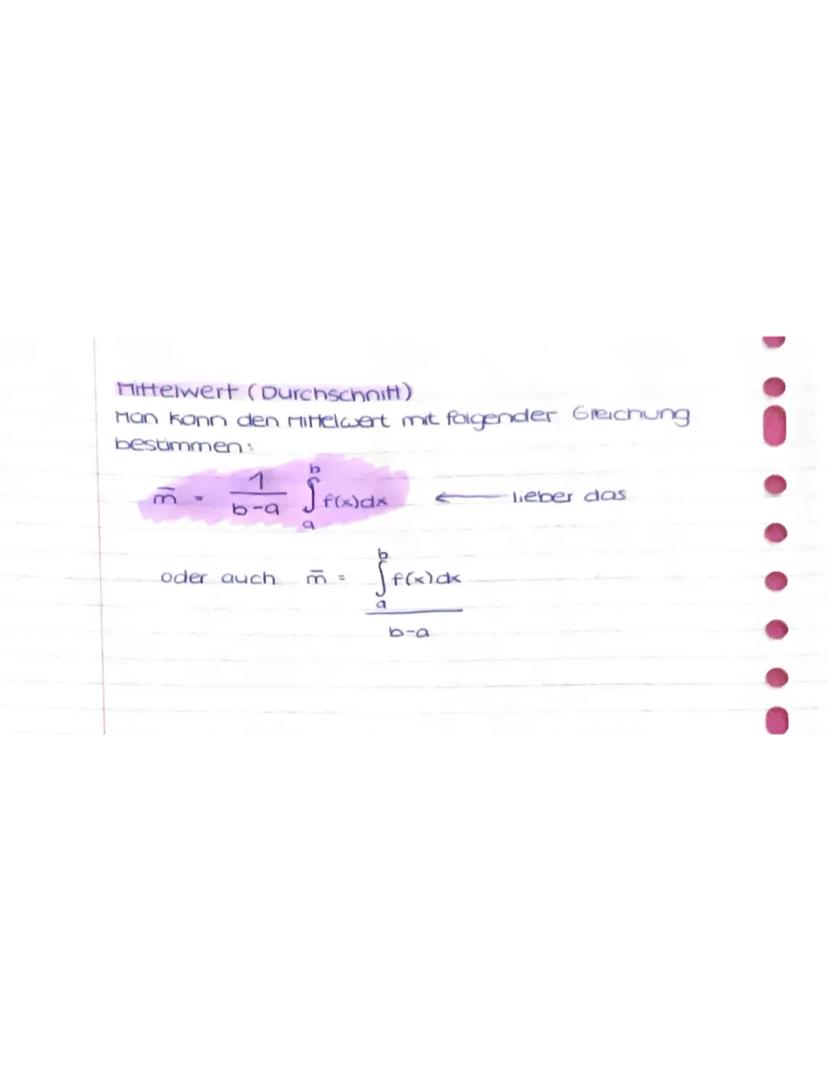 Mittelwert (Durchschnitt)
Man kann den Mittelwert mit folgender Gleichung
bestimmen:
m̄ = 1/(b-a) ∫ₐᵇ f(x)dx ← lieber das
oder auch m̄ = (∫ₐᵇ f(x)dx)/(b-a)